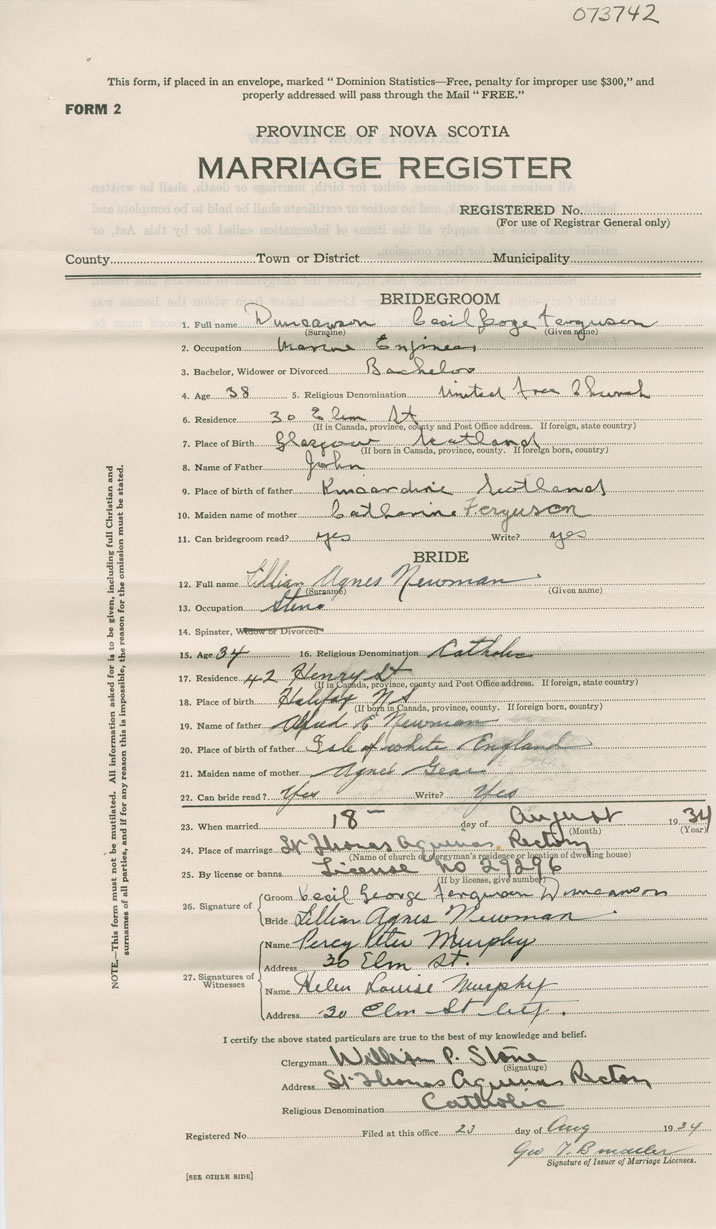 073742
This form, if placed in an envelope, marked " Dominion Statistics—Free, penalty for improper use $300," and
properly addressed will pass through the Mail " FREE."
FORM 2
PROVINCE OF NOVA SCOTIA
MARRIAGE REGISTER
REGISTERED No.
(For use of Registrar General only)
County Town or District Municipality
BRIDEGROOM
1. Full name Duncanson Cecil George Ferguson
(Surname) (Given name)
2. Occupation Marine Engineer
3. Bachelor, Widower or Divorced Bachelor
4. Age 38 5. Religious Denomination United Free Church
6. Residence 30 Elm St
(If in Canada, province, county and Post Office address. If foreign, state country)
7. Place of Birth Glasgow Scotland
(If born in Canada, province, county. If foreign born, country)
8. Name of Father John
9. Place of birth of father Kincardine Scotland
10. Maiden name of mother Catherine Ferguson
11. Can bridegroom read? yes Write? yes
BRIDE
12. Full name Lillian Agnes Newman
(Surname) (Given name)
13. Occupation Steno
14. Spinster, Widow or Divorced.
15. Age 34 16. Religious Denomination Catholic
17. Residence 42 Henry St
(If in Canada, province, county and Post Office address. If foreign, state country)
18. Place of birth Halifax N S
(If born in Canada, province, county. If foreign born, country)
19. Name of father Alfred E Newman
20. Place of birth of father Isle of white England
21. Maiden name of mother Agnes Gear
22. Can bride read? Yes Write? Yes
23. When married 18 day of August 1934
(Month) (Year)
24. Place of marriage St Thomas Aquinas Rectory
(Name of church or clergyman's residence or location of dwelling house)
25. By license or banns License no 29296
(If by license, give number)
26. Signature of Groom Cecil George Ferguson Duncanson
Bride Lillian Agnes Newman
27. Signatures of Witnesses
Name Percy Peter Murphy
Address 30 Elm St.
Name Helen Louise Murphy
Address 30 Elm St City.
I certify the above stated particulars are true to the best of my knowledge and belief.
Clergyman William P. Stone
(Signature)
Address St Thomas Aquinas Rectory
Religious Denomination Catholic
Registered No. Filed at this office 23 day of Aug 1934
Geo T.
Signature of Issuer of Marriage Licenses.
[SEE OTHER SIDE]
NOTE.—This form must not be mutilated. All information asked for is to be given, including full Christian and
surnames of all parties, and if for any reason this is impossible, the reason for the omission must be stated.